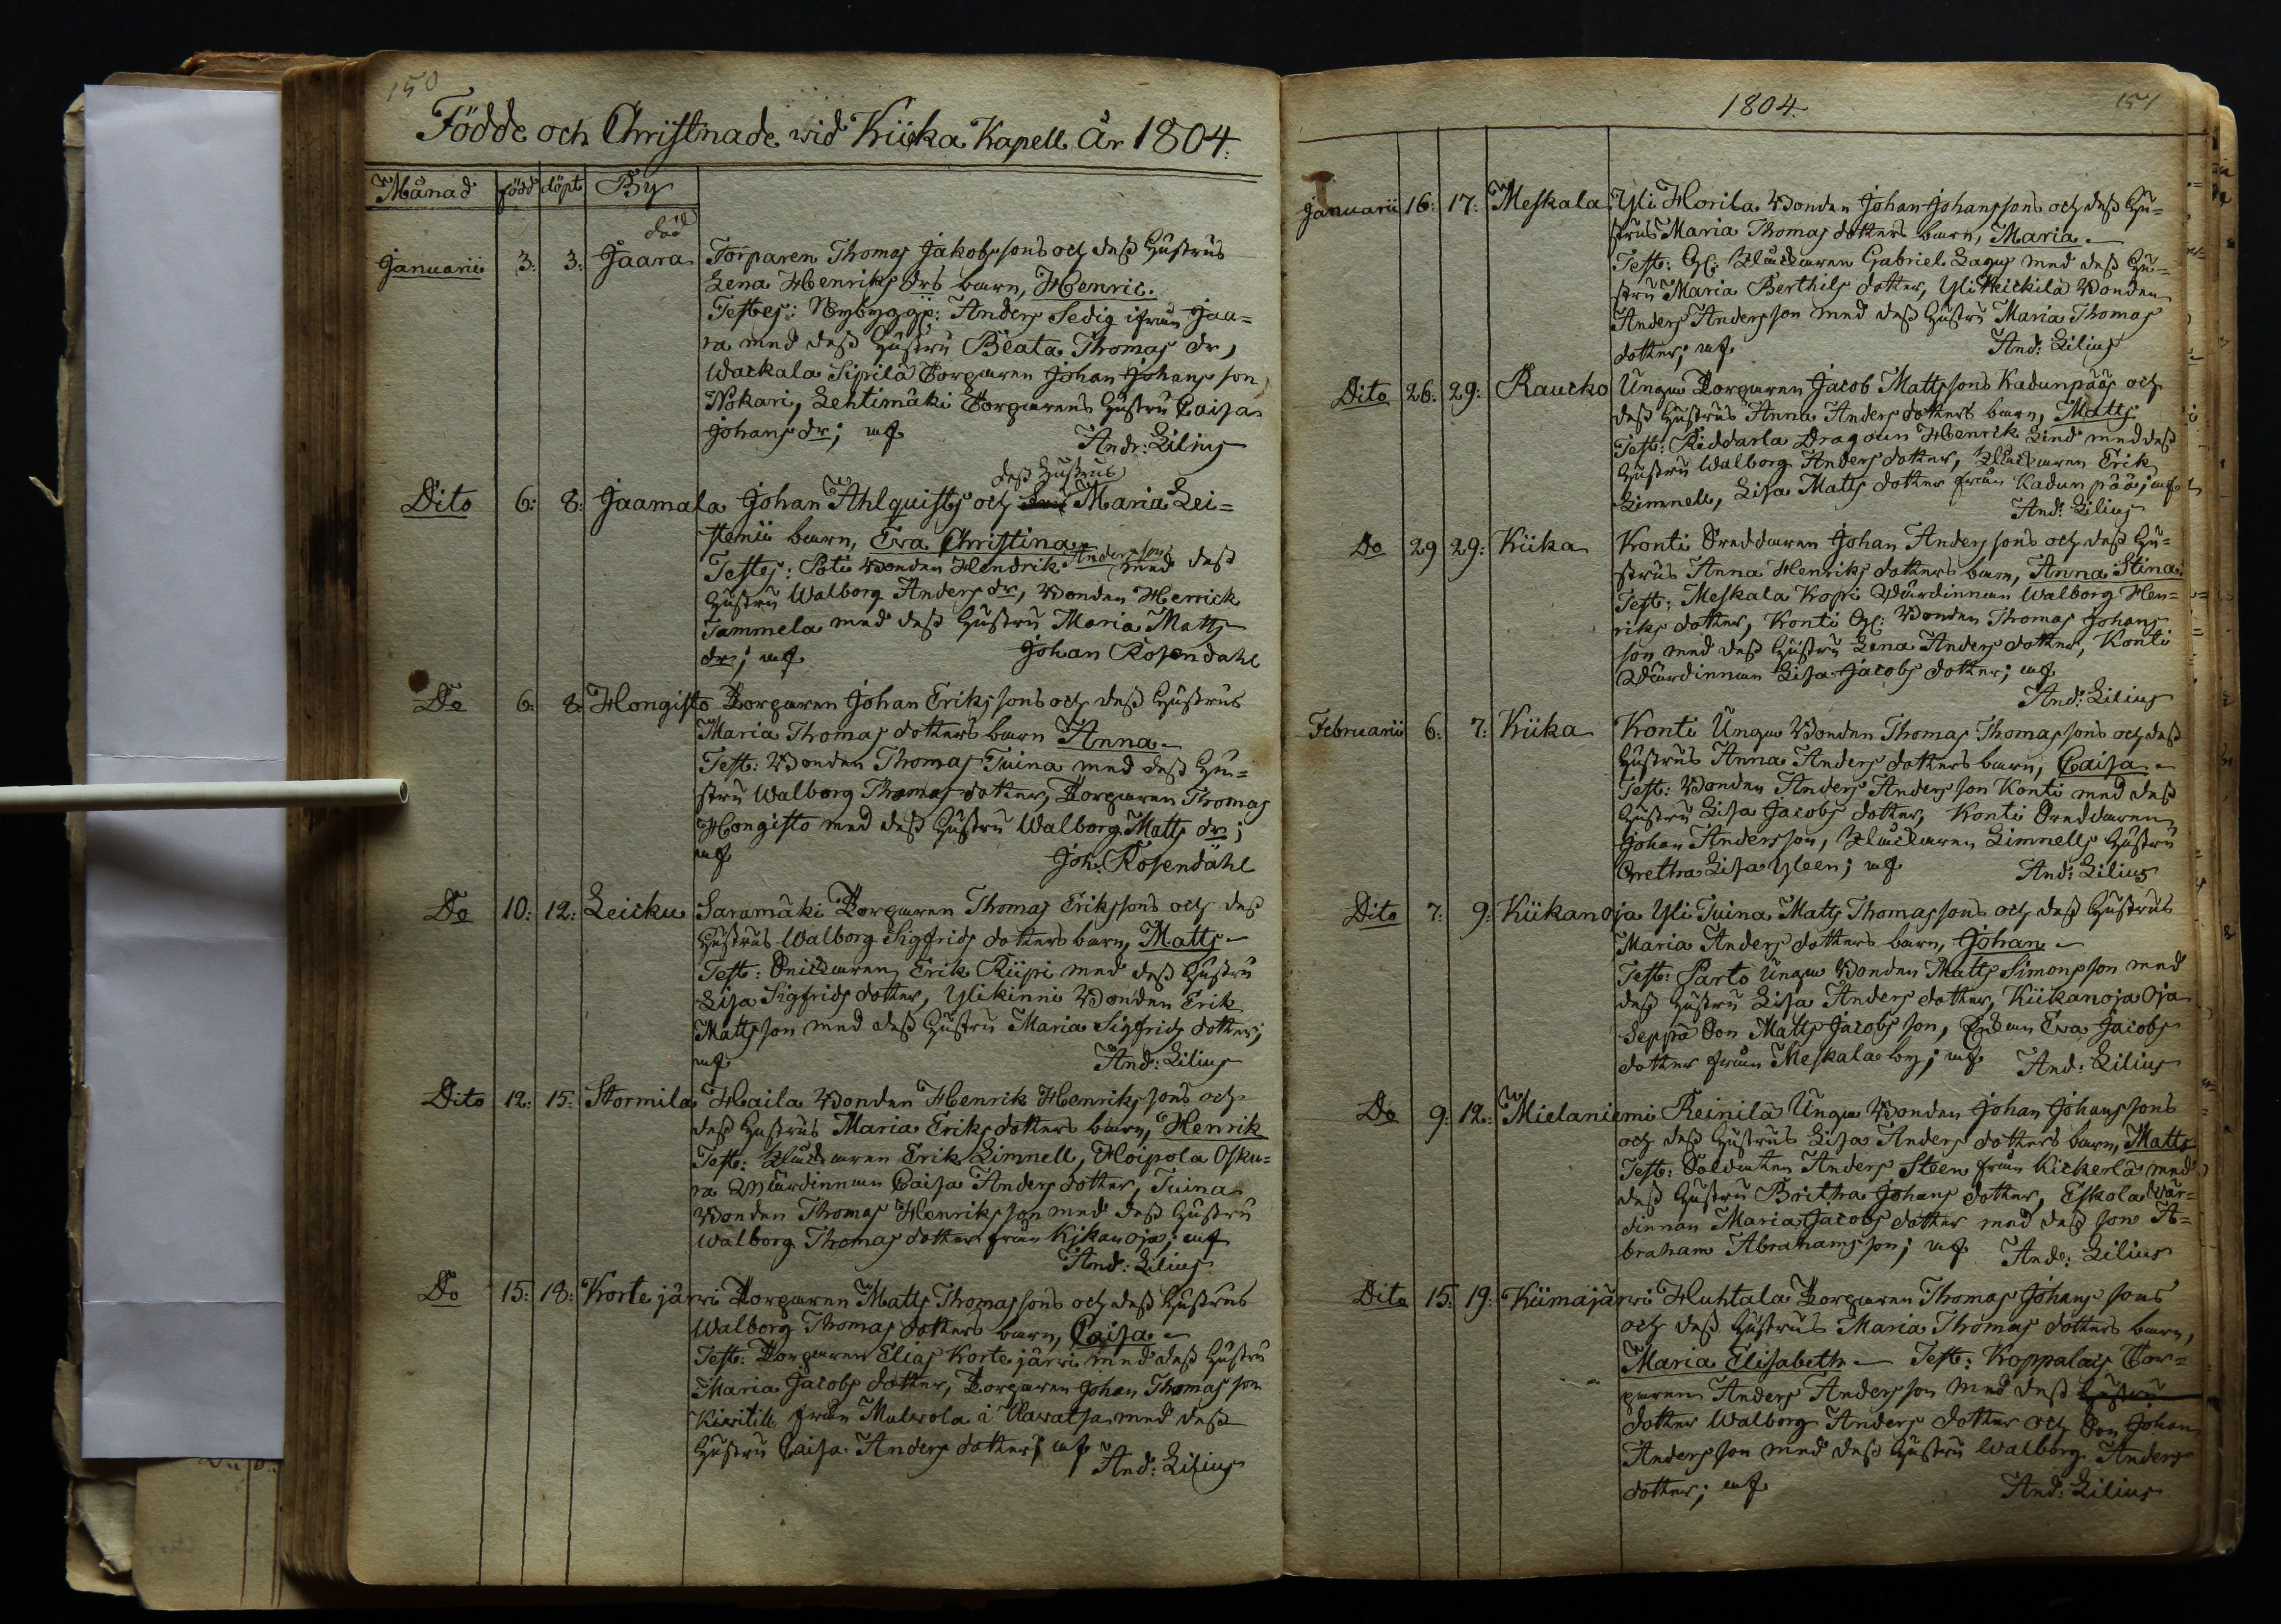 150
Födde och Christnade wid Kiika Kapell År 1804.
Månad född döpt By
död
Januarii 3. 3. Jaara Torparen Thomas Jakobssons och dess Hustrus
Lena Henriks drs barn, Henric.
Testes: Nybygg: Anders Sedig ifrån Jaa=
ra med dess Hustru Beata Thomas dr,
Wackala Sipilä Torparen Johan Johans son
Nokari, Lehtimäki Torparens Hustru Caisa
Johans dr; mf
Andr: Lilius
dess Hustrus
Dito 6: 8: Jaamala Johan Ahlquists och Maria Lei=
stenii barn, Eva Christina
Anderssons
Testes: Poti Bonden Hendrik med dess
Hustru Walborg Anders dr, Bonden Henrick
Tammela med dess Hustru Maria Matts
dr; mf Johan Rosendahl
Do 6. 8. Hongisto Torparen Johan Erikssons och dess Hustrus
Maria Thomas dotters barn Anna
Test: Bonden Thomas Tuina med dess Hu=
stru Walborg Thomas dotter, Torparen Thomas
Hongisto med dess Hustru Walborg Matts dr;
mf Joh: Rosendahl
Do 10: 12: Leicku Saramäki Torparen Thomas Erikssons och dess
Hustrus Walborg Sigfrids dotters barn, Matts
Test: Erik Riipi med dess Hustru
Lisa Sigfrids dotter, Ylikinni Bonden Erik
Mattsson med dess Hustru Maria Sigfrids dotter;
mf And: Lilius
Dito 12: 15: Stormila Haila Bonden Henrik Henrikssons och
dess Hustrus Maria Eriks dotters barn, Henrik
Test: Klåckaren Erik Limnell, Hoipola Osku=
ra Wärdinnan Caisa Anders dotter, Tuina
Bonden Thomas Henriksson med dess Hustru
Walborg Thomas dotter från Kikanoja; mf
And: Lilius
Do 15: 18: Kortejärwi Torparen Matts Thomassons och dess Hustrus
Walborg Thomas dotters barn, Caisa
Test: Torparen Elias Kortejärwi med dess Hustru
Maria Jacobs dotter, Torparen Johan Thomas son
från Mulwola i med dess
Hustru Caisa Anders dotter; mf
And: Lilius
1804.
151
Januarii 16: 17: Meskala Yli Horila Bonden Johan Johanssons och dess Hu=
strus Maria Thomas dotters barn, Maria
Test: Klåckaren Gabriel Lagus med dess Hu=
stru Maria Berthils dotter, Yli Heickilä Bonden
Anders Andersson med dess Hustru Maria Thomas
dotter; mf And: Lilius
Dito 26: 29: Raucko Unga Torparen Jacob Mattssons Kadunpääs och
dess Hustrus Anna Anders dotters barn, Matts
Test: Riddarla Dragoun Henrik Lind med dess
Hustru Walborg Anders dotter, Klåckaren Erik
Limnell, Lisa Matts dotter från Kadunpää; mf
And: Lilius
Do 29 29: Kiika Konti Johan Anderssons och dess Hu=
strus Anna Henriks dotters barn, Anna Stina.
Test: Meskala Kopi Wärdinnan Walborg Hen=
riks dotter, Konti Bonden Thomas Johans
son med dess Hustru Lena Anders dotter, Konti
Wärdinnan Lisa Jacobs dotter; mf
And: Lilius
Februarii 6: 7: Kiika Konti Unga Bonden Thomas Thomassons och dess
Hustrus Anna Anders dotters barn, Caisa
Test: Bonden Anders Andersson Konti med dess
Hustru Lisa Jacobs dotter, Konti
Johan Andersson, Klåckaren Limnells Hustru
Gretha Lisa Yleen; mf And: Lilius
Dito 7: 9: Kiikanoja Yli Tuina Matts Thomassons och dess Hustrus
Maria Anders dotters barn, Johan
Test: Parto Unga Bonden Matts Simonsson med
dess Hustru Lisa Anders dotter, Kiikanoja Oja
Seppä Son Matts Jacobsson, Eva Jacobs
dotter från Meskala by; mf And: Lilius
Do 9: 12: Mielaniemi Reinilä Unga Bonden Johan Johanssons
och dess Hustrus Lisa Anders dotters barn, Matts
Test: Soldaten Anders Steen från Kickerlä med
dess Hustru Britha Johans dotter, Eskola Wär=
dinnan Maria Jacobs dotter med dess son A=
braham Abrahamsson; mf And: Lilius
Dito 15: 19: Kiimajärwi Huhtala Torparen Thomas Johans sons
och dess Hustrus Maria Thomas dotters barn,
Maria Elisabeth Test: Koppalais Tor=
paren Anders Andersson med dess Hustru
dotter Walborg Anders dotter och Son Johan
Andersson med dess Hustru Walborg Anders
dotter; mf And: Lilius